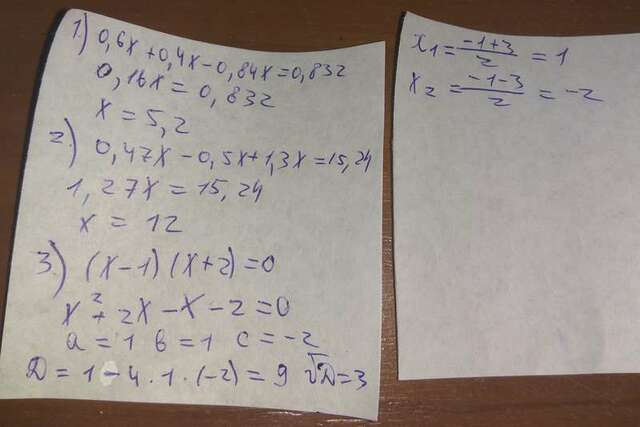 1) 0,6x + 0,4x - 0,84x = 0,832
0,16x = 0,832
x = 5,2
2) 0,47x - 0,5x + 1,3x = 15,24
1,27x = 15,24
x = 12
3) (x-1)(x+2) = 0
x² + 2x - x - 2 = 0
a = 1 b = 1 c = -2
D = 1 - 4 · 1 · (-2) = 9 √D = 3
x₁ = \frac{-1+3}{2} = 1
x₂ = \frac{-1-3}{2} = -2